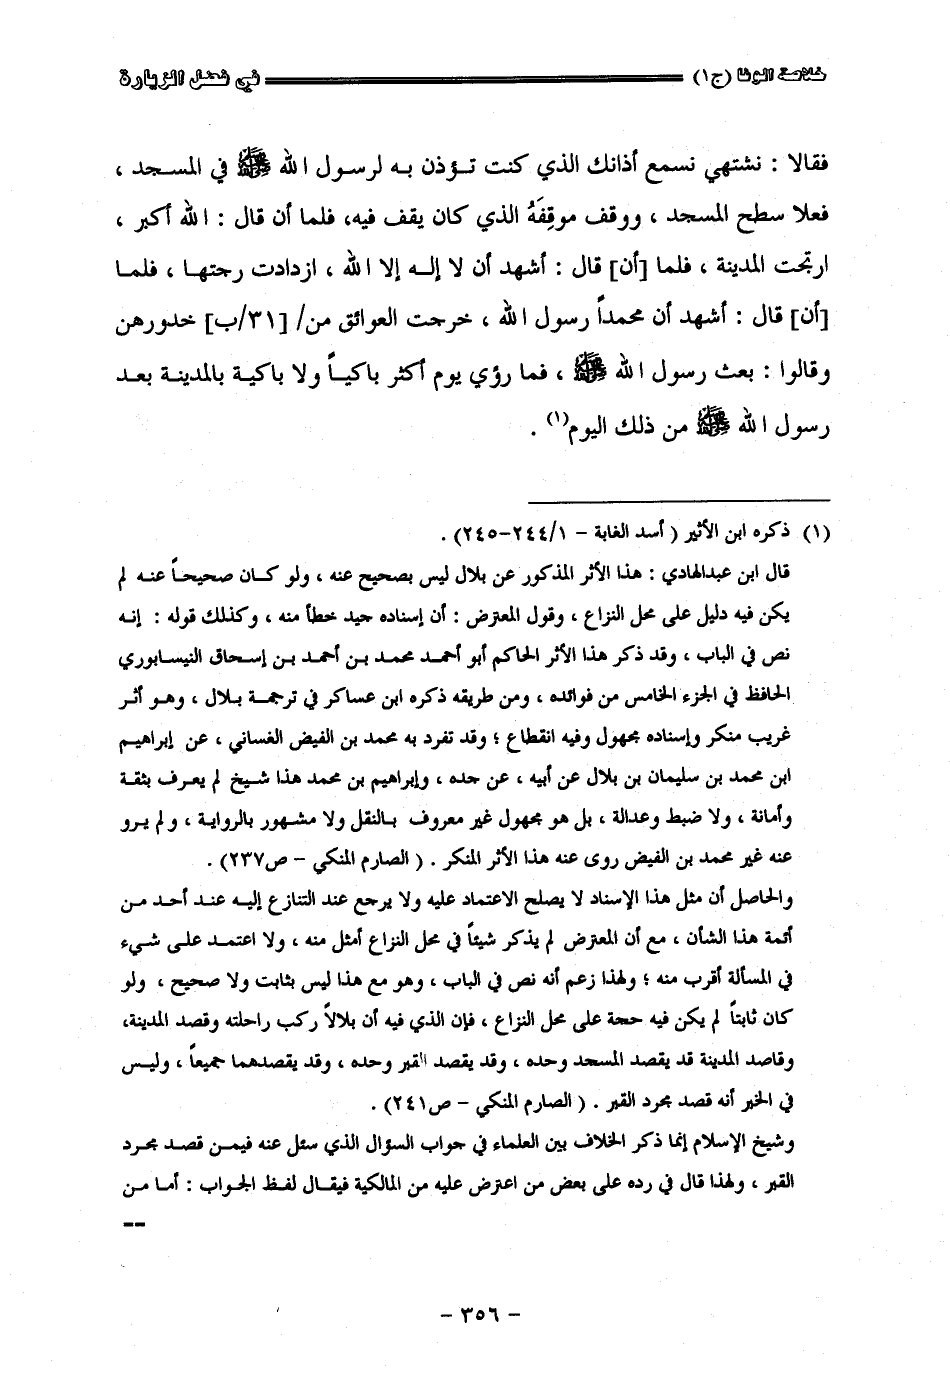 خلاصة الوفا (ج١) في فضل الزيارة
فقالا : نشتهي نسمع أذانك الذي كنت تؤذن به لرسول الله ﷺ في المسجد ،
فعلا سطح المسجد ، ووقف موقِفَهُ الذي كان يقف فيه، فلما أن قال : الله أكبر ،
ارتجت المدينة ، فلما [أن] قال : أشهد أن لا إله إلا الله ، ازدادت رجتها ، فلما
[أن] قال : أشهد أن محمداً رسول الله ، خرجت العواتق من/ [٣١/ب] خدورهن
وقالوا : بعث رسول الله ﷺ ، فما رؤي يوم أكثر باكياً ولا باكية بالمدينة بعد
رسول الله ﷺ من ذلك اليوم(١) .
(١) ذكره ابن الأثير ( أسد الغابة – ٢٤٤/١-٢٤٥) .
قال ابن عبدالهادي : هذا الأثر المذكور عن بلال ليس بصحيح عنه ، ولو كان صحيحاً عنه لم
يكن فيه دليل على محل النزاع ، وقول المعترض : أن إسناده جيد خطأ منه ، وكذلك قوله : إنه
نص في الباب ، وقد ذكر هذا الأثر الحاكم أبو أحمد محمد بن أحمد بن إسحاق النيسابوري
الحافظ في الجزء الخامس من فوائده ، ومن طريقه ذكره ابن عساكر في ترجمة بلال ، وهو أثر
غريب منكر وإسناده مجهول وفيه انقطاع ؛ وقد تفرد به محمد بن الفيض الغساني ، عن إبراهيم
ابن محمد بن سليمان بن بلال عن أبيه ، عن جده ، وإبراهيم بن محمد هذا شيخ لم يعرف بثقة
وأمانة ، ولا ضبط وعدالة ، بل هو مجهول غير معروف بالنقل ولا مشهور بالرواية ، ولم يرو
عنه غير محمد بن الفيض روى عنه هذا الأثر المنكر . ( الصارم المنكي – ص٢٣٧) .
والحاصل أن مثل هذا الإسناد لا يصلح الاعتماد عليه ولا يرجع عند التنازع إليه عند أحد من
أئمة هذا الشأن ، مع أن المعترض لم يذكر شيئاً في محل النزاع أمثل منه ، ولا اعتمد على شيء
في المسألة أقرب منه ؛ ولهذا زعم أنه نص في الباب ، وهو مع هذا ليس بثابت ولا صحيح ، ولو
كان ثابتاً لم يكن فيه حجة على محل النزاع ، فإن الذي فيه أن بلالاً ركب راحلته وقصد المدينة،
وقاصد المدينة قد يقصد المسجد وحده ، وقد يقصد القبر وحده ، وقد يقصدهما جميعاً ، وليس
في الخبر أنه قصد مجرد القبر . ( الصارم المنكي – ص٢٤١) .
وشيخ الإسلام إنما ذكر الخلاف بين العلماء في جواب السؤال الذي سئل عنه فيمن قصد مجرد
القبر ، ولهذا قال في رده على بعض من اعترض عليه من المالكية فيقال لفظ الجواب : أما من
--
- ٣٥٦ -